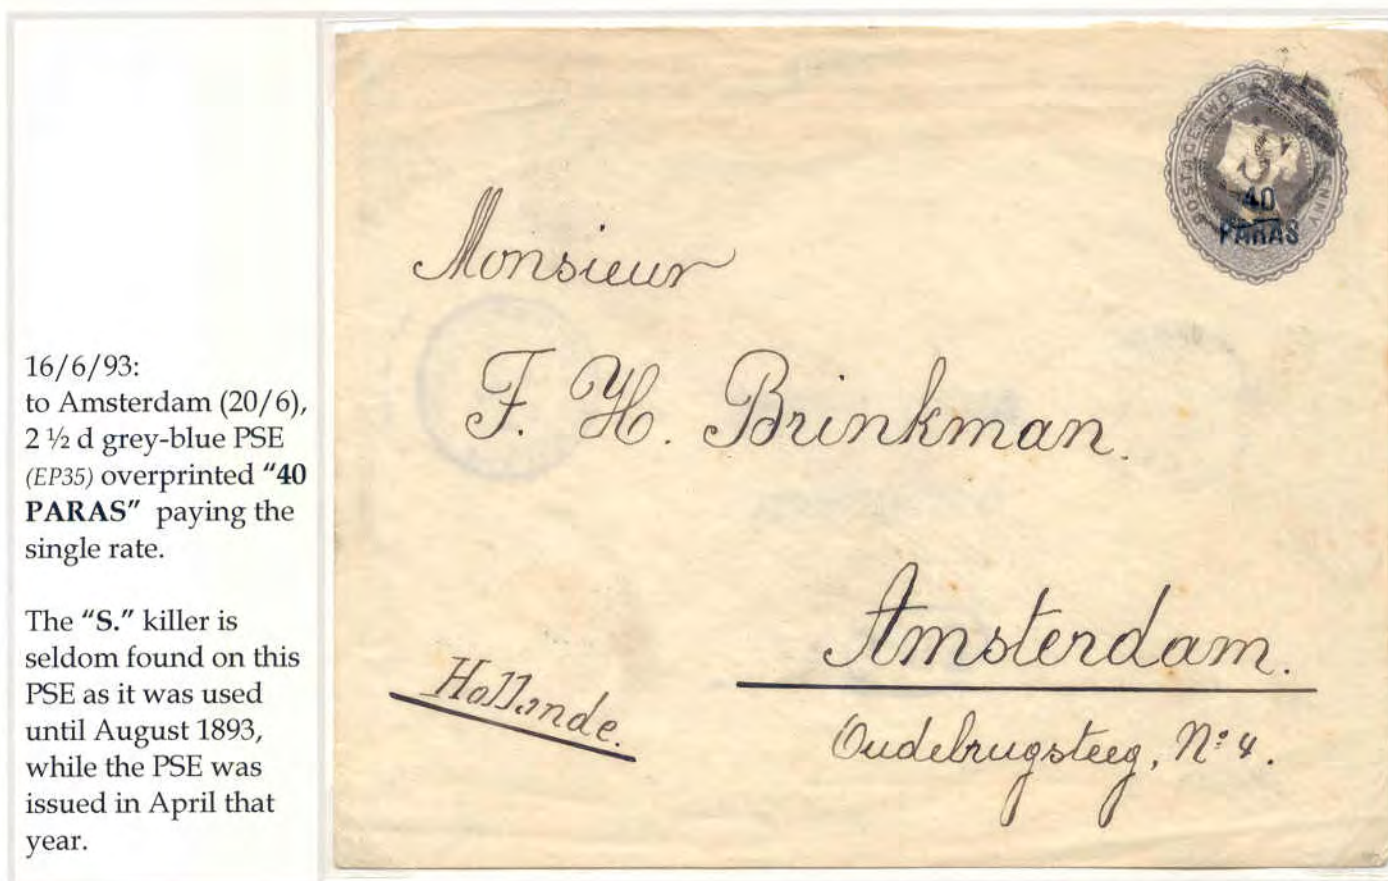 16/6/93:
to Amsterdam (20/6),
2 ½ d grey-blue PSE
(EP35) overprinted "40
PARAS" paying the
single rate.
The "S." killer is
seldom found on this
PSE as it was used
until August 1893,
while the PSE was
issued in April that
year.
POSTAGE TWO
40
PARAS
Monsieur
F. H. Brinkman.
Amsterdam.
Hollande.
Oudebrugsteeg, No: 4.